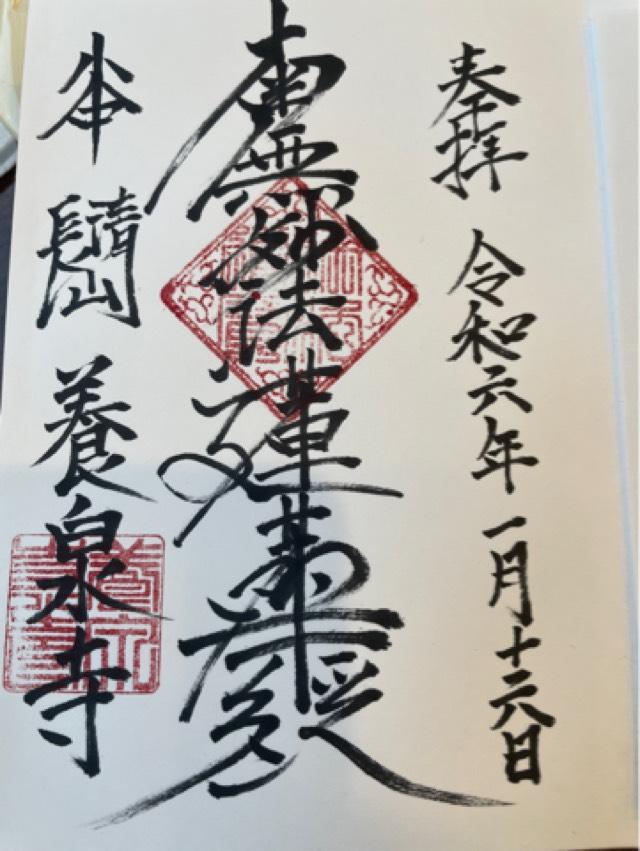 奉拝 令和六年一月十六日
南無妙法蓮華経
長清山 養泉寺